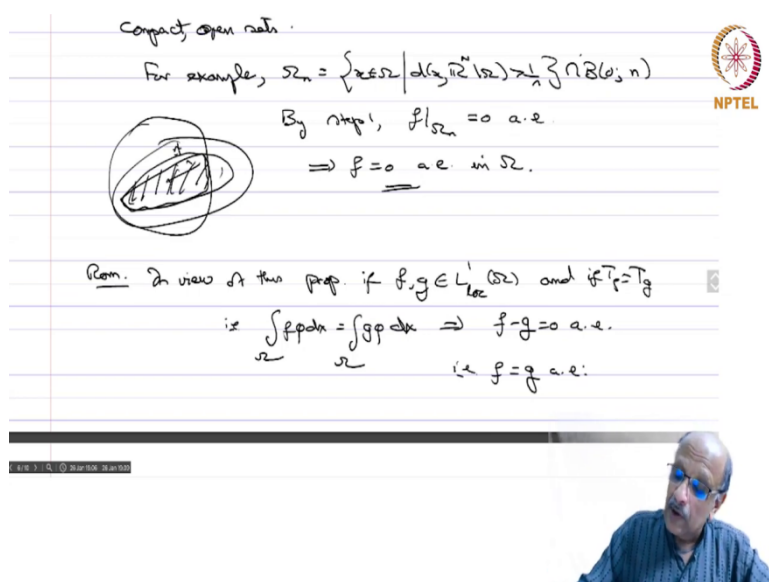 Compact, open sets.
For example, Ωₙ = {x∈Ω | d(x, ℝᴺ\Ω) > 1/n} ∩ B(0; n)
NPTEL
By step 1, f|Ωₙ = 0 a.e.
⇒ f = 0 a.e. in Ω.
Rem. In view of this prop. if f, g ∈ L¹loc(Ω) and if T_f = T_g
i.e. ∫Ω fφ dx = ∫Ω gφ dx ⇒ f-g = 0 a.e.
i.e. f = g a.e.